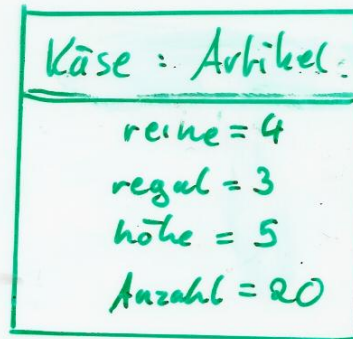 Käse : Artikel
reihe = 4
regal = 3
höhe = 5
Anzahl = 20